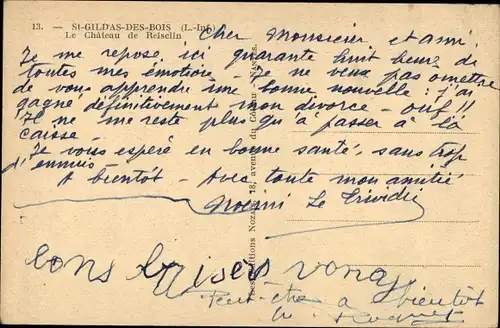 13. - St-GILDAS-DES-BOIS (L.-Inf.)
Le Château de Reisclin
Cher Monsieur et ami
Je me repose ici quarante huit heures de
toutes mes émotions - Je ne veux pas omettre
de vous apprendre une bonne nouvelle : j'ai
gagné définitivement mon divorce - ouf !!
Il ne me reste plus qu'à passer à la
caisse -
Je vous espère en bonne santé, sans trop
d'ennuis -
A bientôt - Avec toute mon amitié
Noémi Le
Editions 18, avenue du
bons baisers
Peut-être à bientôt